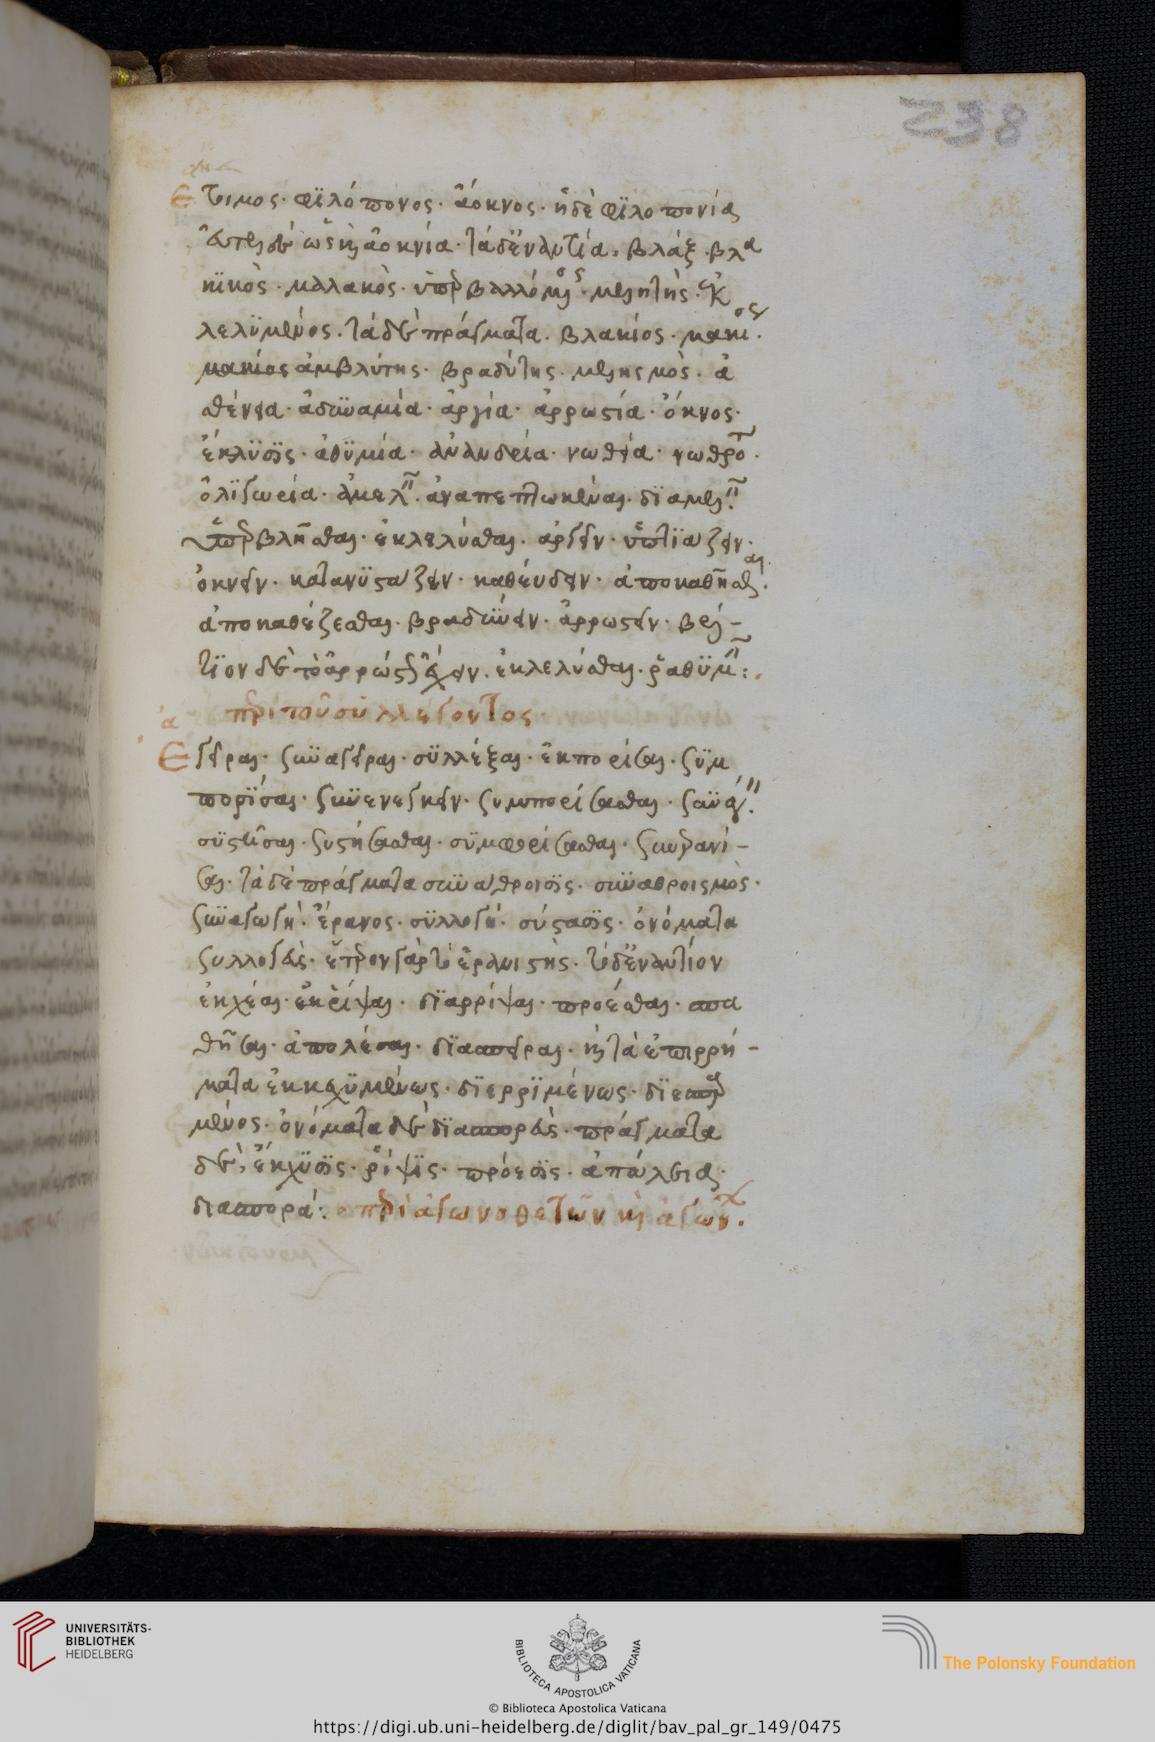 238
ἕτοιμος· φιλόπονος· ἄοκνος· ἡ δὲ φιλοπονία
καὶ ἀοκνία· τὰ δ' ἐναντία, βλάξ· βλα
κικὸς· μαλακὸς· ὑπερβαλλόμενος· μελλητὴς· ἐκ
λελυμένος· τὰ δὲ πράγματα· βλακίας· μακί
μακίας ἀμβλύτης· βραδύτης· μελλησμὸς· ἀ
σθένεια· ἀδυναμία· ἀργία· ἀρρωστία· ὄκνος·
ἔκλυσις· ἀθυμία· ἀνανδρεία· νωθεία· νωθρότης·
ὀλιγωρία· ἀμελ· ἀναπεπτωκέναι· διαμελλ
ὑπερβλῆσθαι· ἐκλελύσθαι· ἀργεῖν· ὑπτιάζειν·
ὀκνεῖν· κατανυστάζειν· καθεύδειν· ἀποκαθῆσθαι·
ἀποκαθέζεσθαι· βραδύνειν· ἀρρωστεῖν· βέλ-
τιον δὲ τὸ ἀρρώστως ἔχειν· ἐκλελύσθαι· ῥαθυμ:
α περὶ τοῦ συλλέγοντος
Ἐγεῖραι· συναγεῖραι· συλλέξαι· ἐκπορίσαι· συμ
πορίσαι· συνενεγκεῖν· συμπορίσασθαι·
συστῆσαι· συστήσασθαι· συμφορήσασθαι· συνερανί-
σαι· τὰ δὲ πράγματα συνάθροισις· συναθροισμὸς·
συναγωγὴ· ἔρανος· συλλογὴ· σύστασις· ὀνόματα
συλλογεὺς· ἕτερον γὰρ τὸ ἐρανιστὴς· τὸ δ' ἐναντίον
ἐκχέαι· ἐκρίψαι· διαρρίψαι· προέσθαι· σπα
θῆσαι· ἀπολέσαι· διασπεῖραι· καὶ τὰ ἐπιρρή-
ματα ἐκκεχυμένως· διερριμένως· διεσπαρ
μένος· ὀνόματα δὲ διασπορεὺς· πράγματα
δὲ, ἔκχυσις· ῥίψις· πρόεσις· ἀπώλεια·
διασπορά: περὶ ἀγωνοθετῶν καὶ ἀγων
UNIVERSITÄTS-
BIBLIOTHEK
HEIDELBERG
BIBLIOTECA APOSTOLICA VATICANA
The Polonsky Foundation
© Biblioteca Apostolica Vaticana
https://digi.ub.uni-heidelberg.de/diglit/bav_pal_gr_149/0475